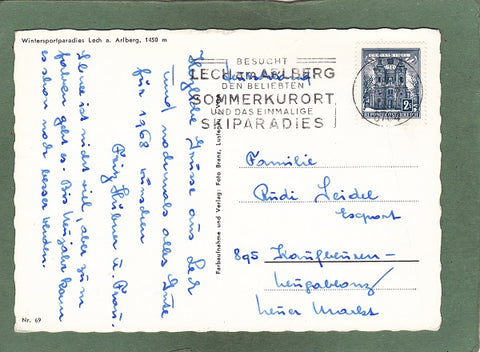 Wintersportparadies Lech a. Arlberg, 1450 m
Herzliche Grüsse aus Lech
und nochmals alles Gute
für 1968 wünschen
Fritz Hübner u. Frau.
Schnee ist nicht viel, aber zum
fahren geht es. Bis Neujahr kann
es schon noch besser werden.
Nr. 69
Farbaufnahme und Verlag: Foto Branz,
BESUCHT
LECH am ARLBERG
DEN BELIEBTEN
SOMMERKURORT
UND DAS EINMALIGE
SKIPARADIES
Familie
Rudi Seidel
Export
895 Kaufbeuren-
Neugablonz
Neuer Markt